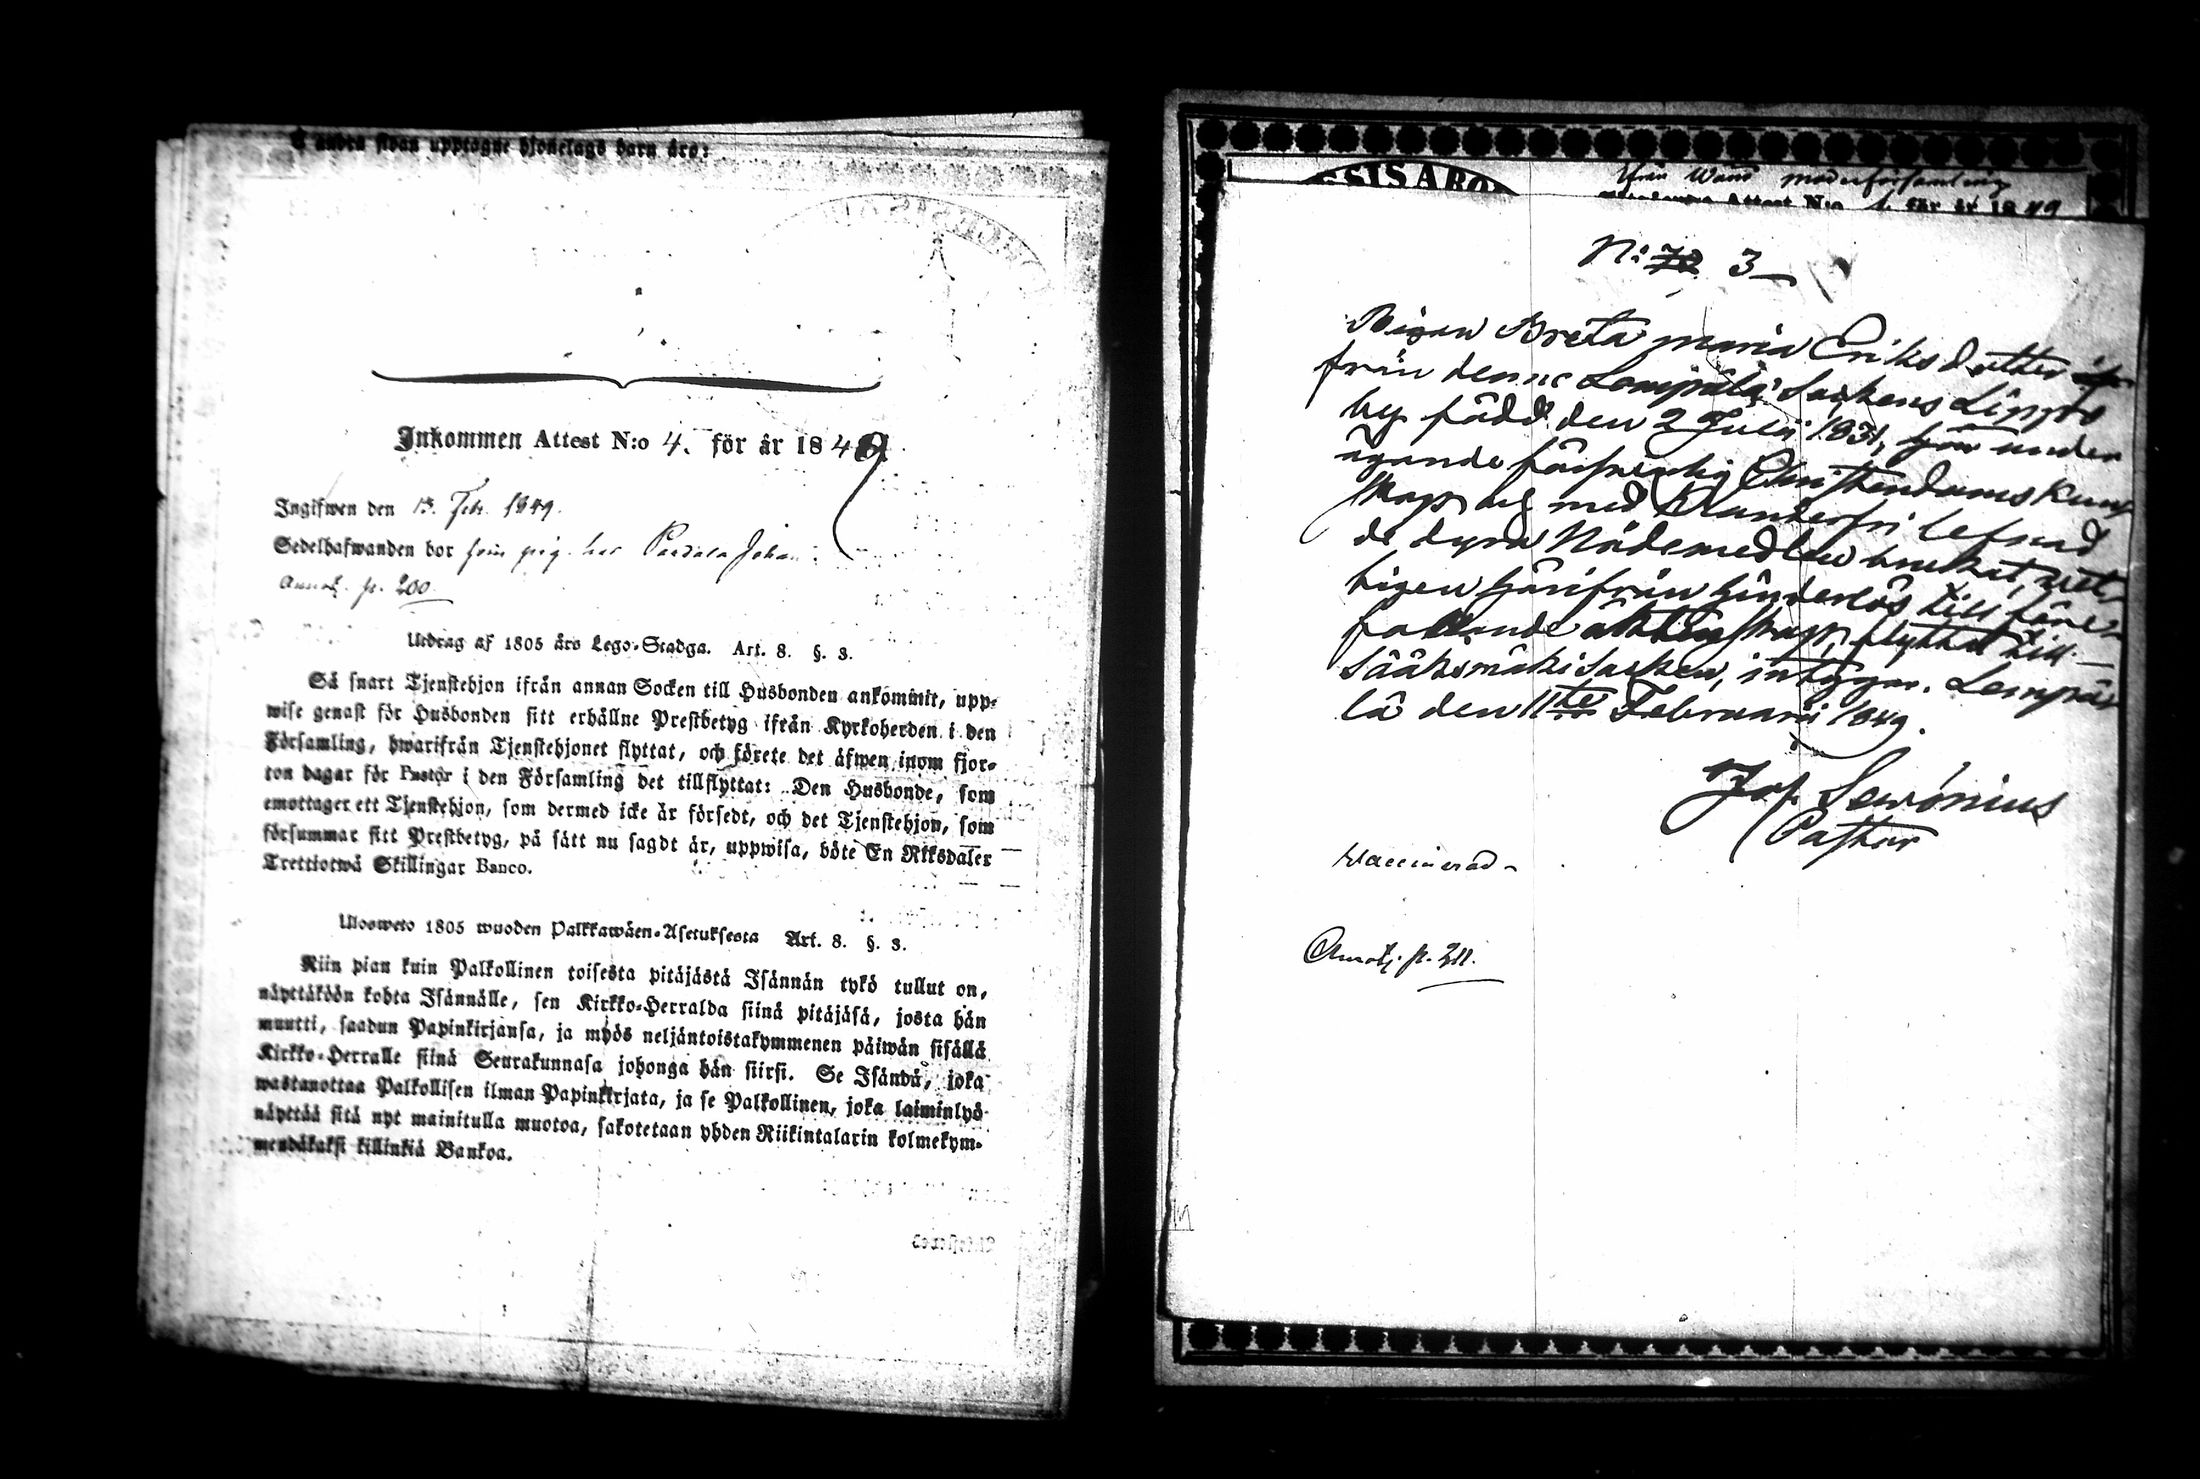 å andra sidan upptagne hjonelags barn äro:
Inkommen Attest N:o 4. för år 1849
Ingifwen den 13. Feb. 1849.
Sedelhafwanden bor som pig. hos Johan
Annot. p. 200.
Utdrag af 1805 års Lego-Stadga. Art. 8. §. 3.
Så snart Tjenstehjon ifrån annan Socken till Husbonden ankommit, upp-
wise genast för Husbonden sitt erhållne Prestbetyg ifrån Kyrkoherden i den
Församling, hwarifrån Tjenstehjonet flyttat, och förete det äfwen inom fjor-
ton dagar för Pastor i den Församling det tillflyttat: Den Husbonde, som
emottager ett Tjenstehjon, som dermed icke är försedt, och det Tjenstehjon, som
försummar sitt Prestbetyg, på sätt nu sagdt är, uppwisa, böte En Riksdaler
Trettiotwå Skillingar Banco.
Ulosweto 1805 wuoden Palkkawäen-Asetuksesta Art. 8. §. 3.
Niin pian kuin Palkollinen toisesta pitäjästä Isännän tykö tullut on,
näyttäköön kohta Isännälle, sen Kirkko-Herralda siinä pitäjäsä, josta hän
muutti, saadun Papinkirjansa, ja myös neljäntoistakymmenen päiwän sisällä
Kirkko-Herralle siinä Seurakunnasa johonga hän siirsi. Se Isändä, joka
wastanottaa Palkollisen ilman Papinkirjata, ja se Palkollinen, joka laiminlyö
näyttää sitä nyt mainitulla muotoa, sakotetaan yhden Riikintalarin kolmekym-
mendäkaksi killinkiä Bankoa.
från moderförsamling
Attest N:o 1. för år 1849
N: 72 3
Pigan Greta Maria Eriksdotter
från denne Lempälä Sockens Lippo
by född den 2 Julii 1831, har under
ägande försvarlig Christendoms kun
skap och med klanderfri lefnad
de dyra Nådemedlen brukat,
bigen härifrån hinderlös till före
fallande äktenskap, flyttat till
Sääksmäki Socken, intygar. Lempä
lä den 11te Februarii 1849.
Jos. Sewónius
Pastor
Vaccinerad
Annot. p. 211.